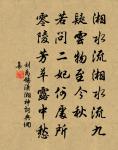 湘水流湘水流九
疑雲物至今秋
若問二妃何處所
零陵芳草露中愁
劉禹錫瀟湘神詞典網